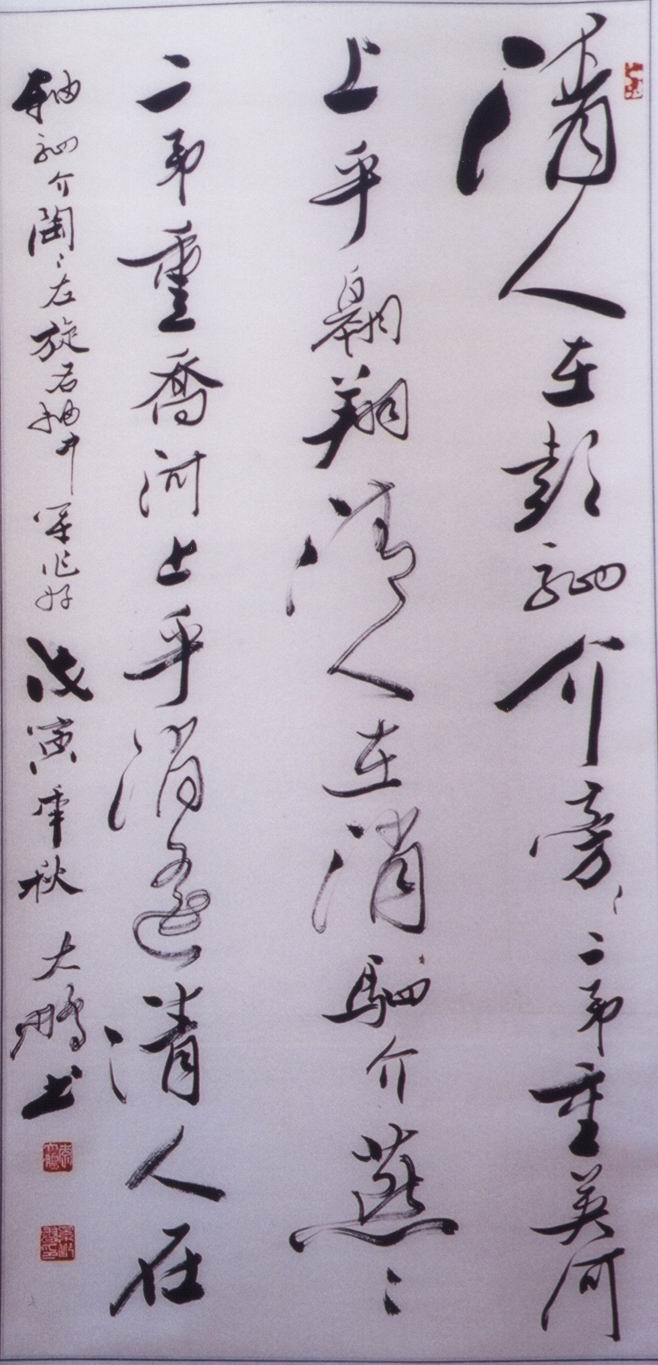 清人在彭駟介旁〻二矛重英河
上乎翱翔清人在消駟介麃〻
二矛重喬河上乎消遙清人在
軸駟介陶〻左旋右抽中軍作好 戊寅年秋 大鵬书